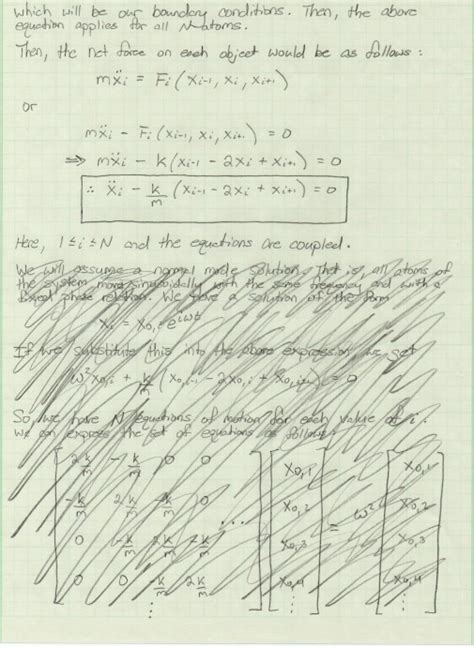 which will be our boundary conditions. Then, the above
equation applies for all N-atoms.
Then, the net force on each object would be as follows:
mẍᵢ = Fᵢ(xᵢ₋₁, xᵢ, xᵢ₊₁)
or
mẍᵢ - Fᵢ(xᵢ₋₁, xᵢ, xᵢ₊₁) = 0
⇒ mẍᵢ - k(xᵢ₋₁ - 2xᵢ + xᵢ₊₁) = 0
∴ ẍᵢ - k/m (xᵢ₋₁ - 2xᵢ + xᵢ₊₁) = 0
Here, 1 ≤ i ≤ N and the equations are coupled.
We will assume a normal mode solution. That is, all atoms of
the system move sinusoidally with the same frequency and with a
fixed phase relation. We have a solution of the form
xᵢ = x₀,ᵢ e^{iωt}
If we substitute this into the above expression we get
ω²x₀,ᵢ + k/m (x₀,ᵢ₋₁ - 2x₀,ᵢ + x₀,ᵢ₊₁) = 0
So, we have N equations of motion for each value of i.
We can express the set of equations as follows:
[ 2k/m -k/m 0 0 ] [ x₀,₁ ] [ x₀,₁ ]
[ -k/m 2k/m -k/m 0 ... ] [ x₀,₂ ] = ω² [ x₀,₂ ]
[ 0 -k/m 2k/m -k/m ] [ x₀,₃ ] [ x₀,₃ ]
[ 0 0 -k/m 2k/m ] [ x₀,₄ ] [ x₀,₄ ]
⋮ ⋮ ⋮